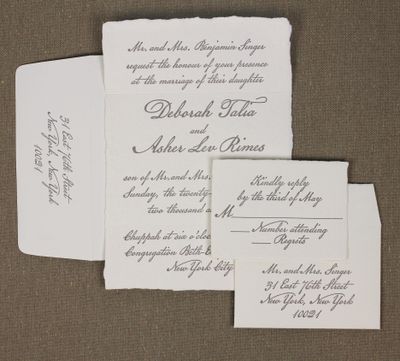 Mr. and Mrs. Benjamin Singer
request the honour of your presence
at the marriage of their daughter
Deborah Talia
and
Asher Lev Rimes
son of Mr. and Mrs.
Sunday, the twenty-
two thousand a
Chuppah at six o'clo
Congregation Beth-E
New York City
31 East 76th Street
New York, New York
10021
Kindly reply
by the third of May
M
Number attending
Regrets
Mr. and Mrs. Singer
31 East 76th Street
New York, New York
10021